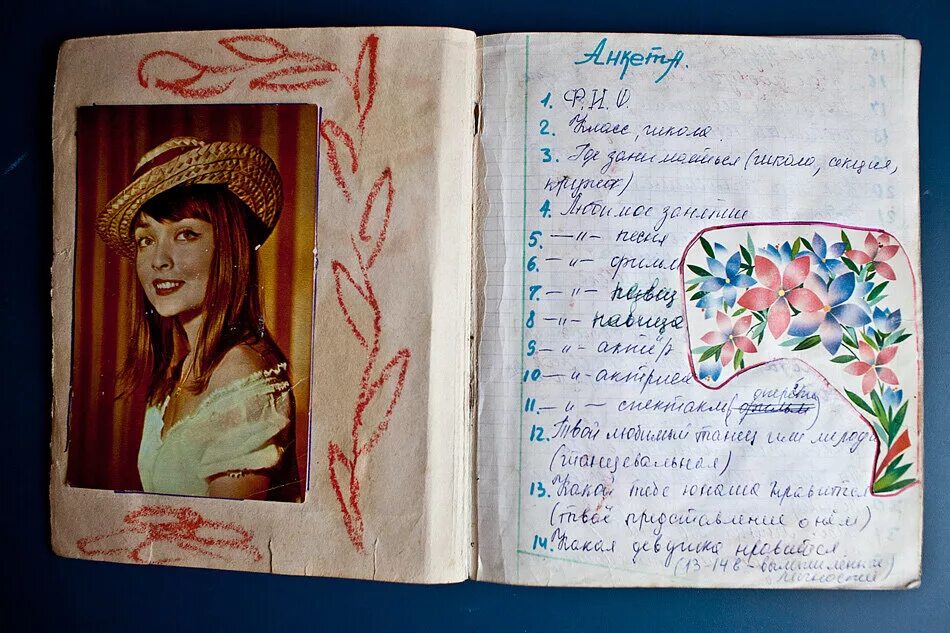 Анкета.
1. Ф.И.О.
2. Класс, школа
3. Где заниматься (школа, секция,
кружок)
4. Любимое занятие
5. —"— песня
6. —"— фильм
7. —"— певец
8 —"— певица
9. —"— актёр
10 —"— актриса
оперетта
11. —"— спектакль (фильм)
12. Твой любимый танец или мелодия
(танцевальная)
13. Какой тебе юноша нравится
(твоё представление о нём)
14. Какая девушка нравится
(13-14 в - вымышленные
личности)
15
16
17